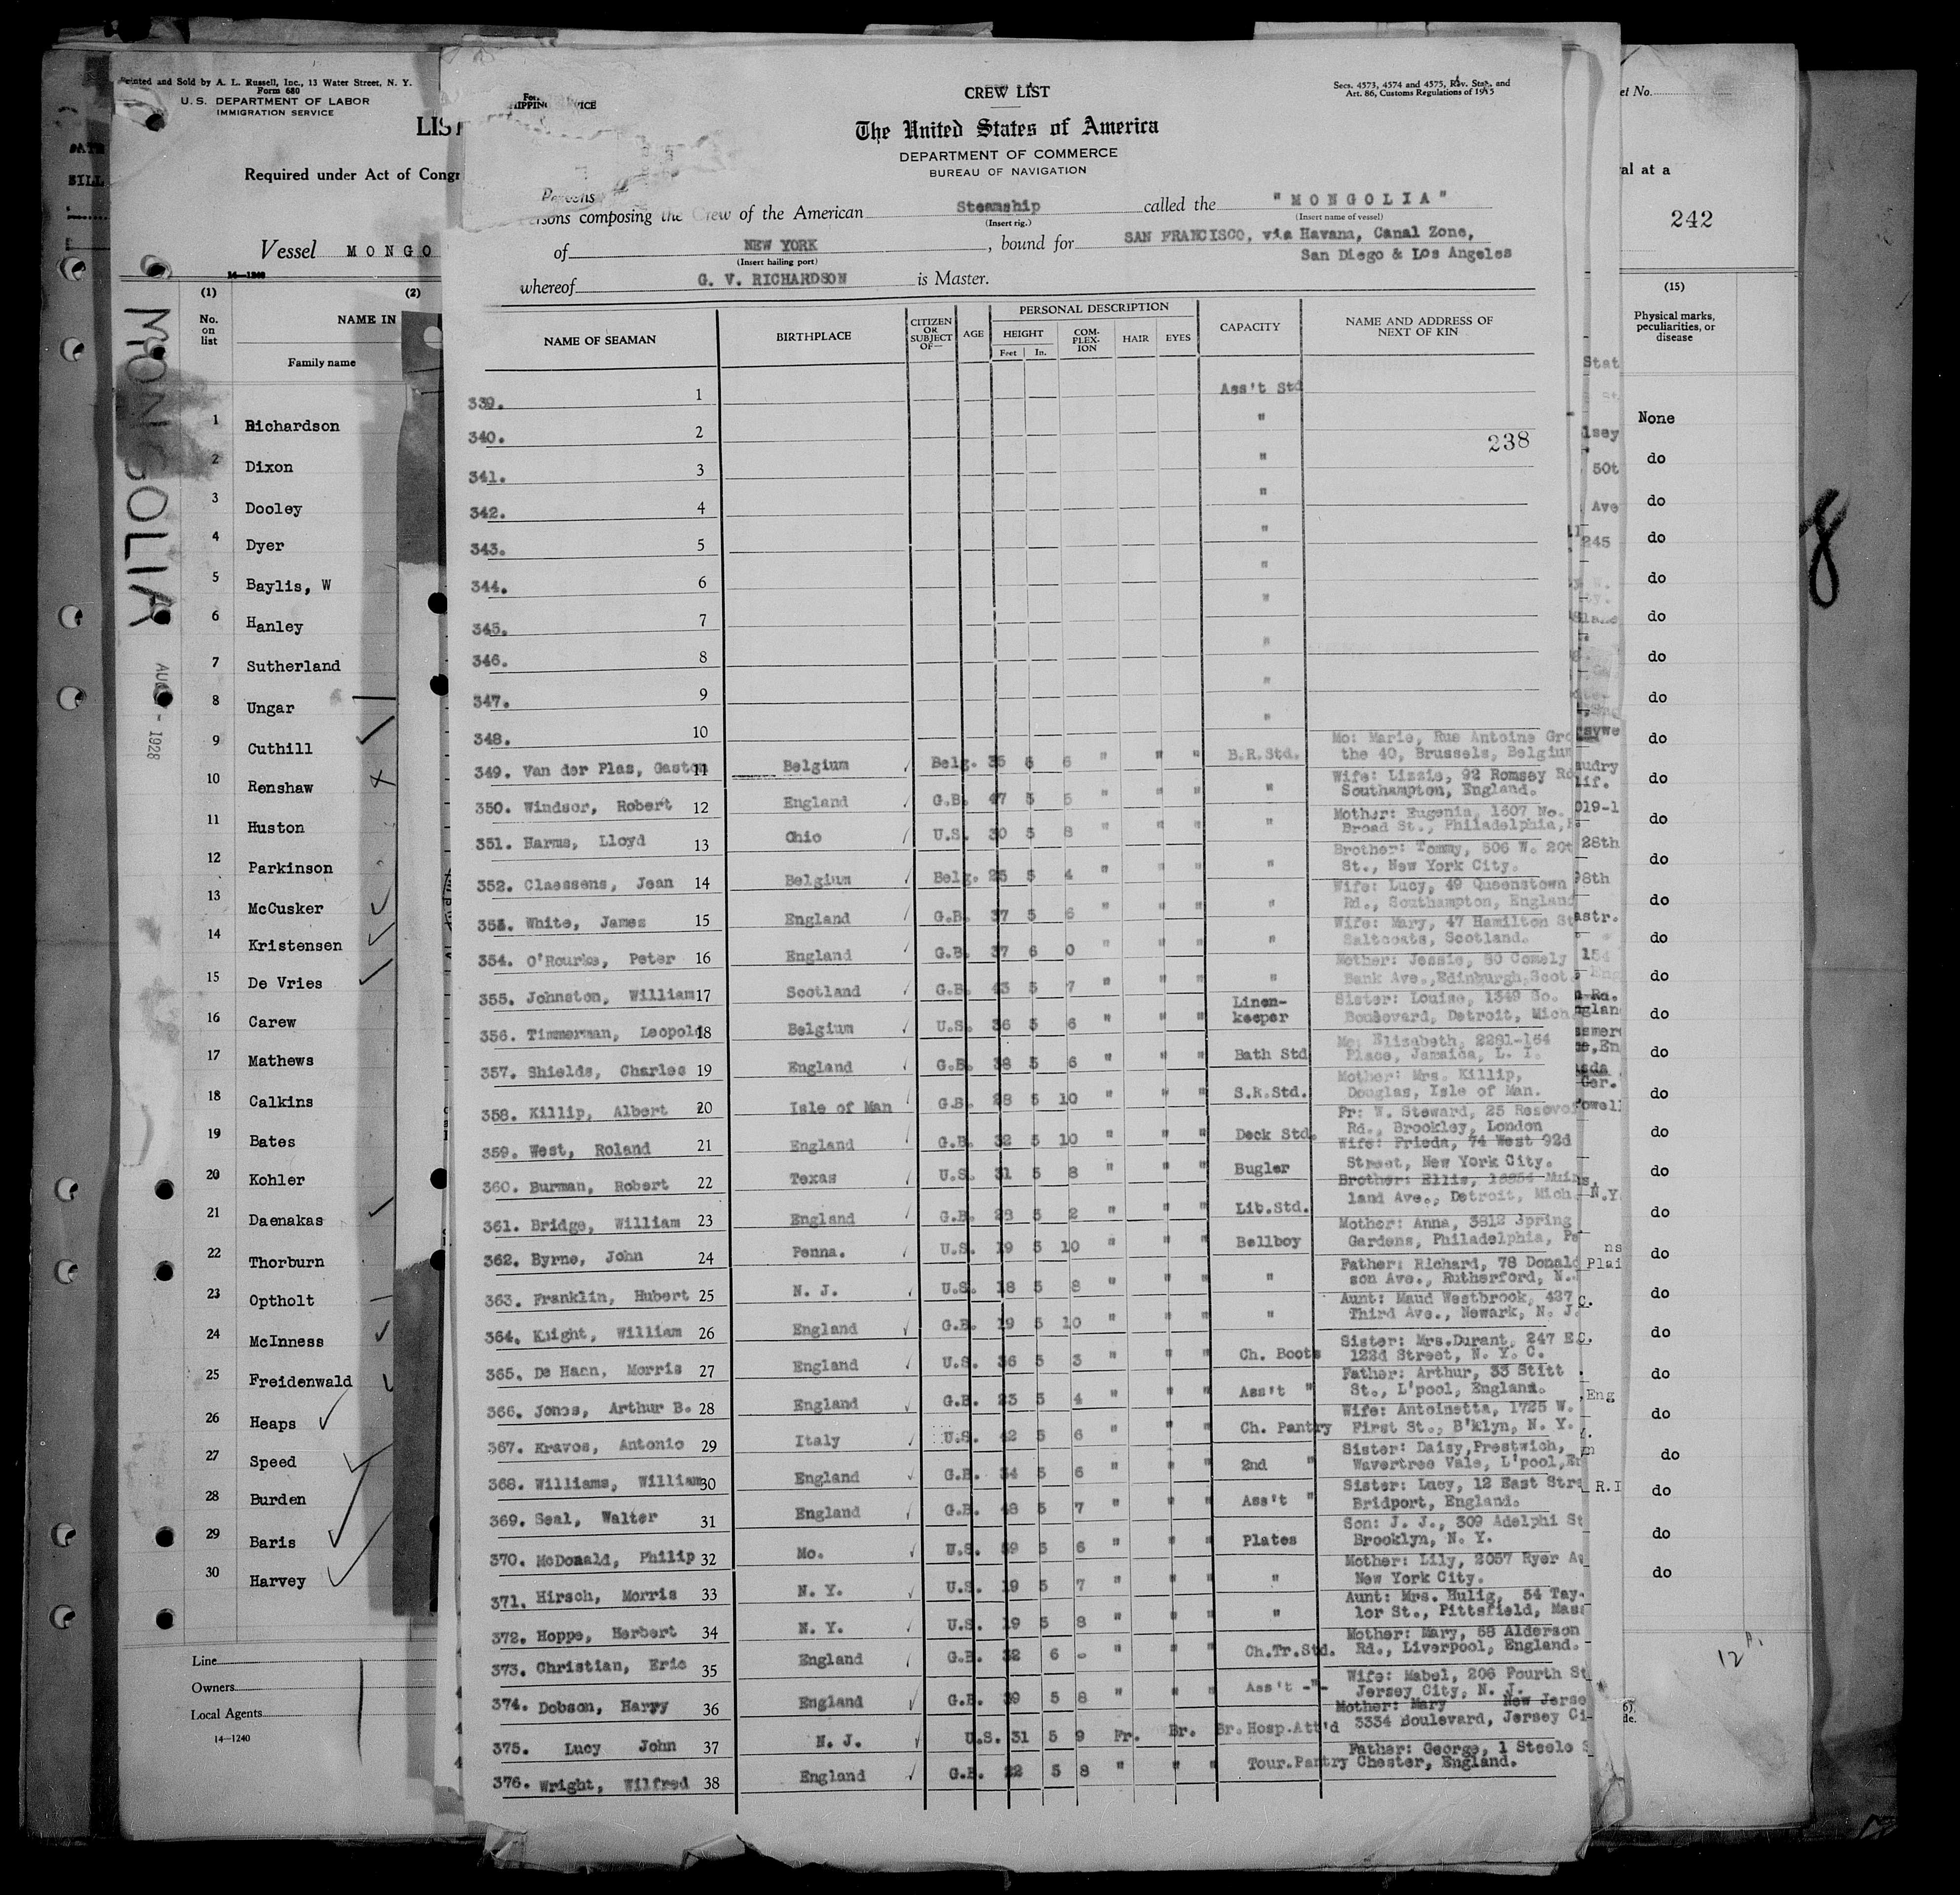 Printed and Sold by A. L. Russell, Inc., 13 Water Street, N. Y.
Form 680
U. S. DEPARTMENT OF LABOR
IMMIGRATION SERVICE
LIST
Required under Act of Congr
Vessel MONGO
14—1240
(1) (2)
No. on list
NAME IN
Family name
1 Richardson
2 Dixon
3 Dooley
4 Dyer
5 Baylis, W
6 Hanley
7 Sutherland
8 Ungar
9 Cuthill
10 Renshaw
11 Huston
12 Parkinson
13 McCusker
14 Kristensen
15 De Vries
16 Carew
17 Mathews
18 Calkins
19 Bates
20 Kohler
21 Daenakas
22 Thorburn
23 Optholt
24 McInness
25 Freidenwald
26 Heaps
27 Speed
28 Burden
29 Baris
30 Harvey
Line
Owners
Local Agents
14—1240
MONGOLIA
AUG - 1928
CREW LIST
Secs. 4573, 4574 and 4575, Rev. Stat. and
Art. 86, Customs Regulations of 1915
The United States of America
DEPARTMENT OF COMMERCE
BUREAU OF NAVIGATION
Persons
ersons composing the Crew of the American Steamship called the "MONGOLIA"
(Insert rig.) (Insert name of vessel)
of NEW YORK, bound for SAN FRANCISCO, via Havana, Canal Zone,
(Insert hailing port) San Diego & Los Angeles
whereof G. V. RICHARDSON is Master.
NAME OF SEAMAN BIRTHPLACE CITIZEN OR SUBJECT OF— AGE PERSONAL DESCRIPTION CAPACITY NAME AND ADDRESS OF NEXT OF KIN
HEIGHT COMPLEXION HAIR EYES
Feet In.
339. 1 Ass't Std
340. 2 "
238
341. 3 "
342. 4 "
343. 5 "
344. 6 "
345. 7 "
346. 8 "
347. 9 "
348. 10 "
349. Van der Plas, Gaston 11 Belgium Belg. 35 5 6 " " " B.R.Std. Mo: Marie, Rue Antoine Gro
the 40, Brussels, Belgium
350. Windsor, Robert 12 England G.B. 47 5 5 " " " " Wife: Lizzie, 92 Romsey Rd
Southampton, England.
351. Harms, Lloyd 13 Ohio U.S. 30 5 8 " " " " Mother: Eugenia, 1607 No.
Broad St., Philadelphia, P
352. Claessens, Jean 14 Belgium Belg. 25 5 4 " " " " Brother: Tommy, 506 W. 20t
St., New York City.
353. White, James 15 England G.B. 37 5 6 " " " " Wife: Lucy, 49 Queenstown
Rd., Southampton, England
354. O'Rourke, Peter 16 England G.B. 37 6 0 " " " " Wife: Mary, 47 Hamilton St
Saltcoats, Scotland.
355. Johnston, William 17 Scotland G.B. 43 5 7 " " " " Mother: Jessie, 80 Comely
Bank Ave., Edinburgh, Scot.
356. Timmerman, Leopold 18 Belgium U.S. 36 5 6 " " " Linen-keeper Sister: Louise, 1349 So.
Boulevard, Detroit, Mich
357. Shields, Charles 19 England G.B. 38 5 6 " " " Bath Std Mo: Elizabeth, 2281-164
Place, Jamaica, L. I.
358. Killip, Albert 20 Isle of Man G.B. 28 5 10 " " " S.R.Std. Mother: Mrs. Killip,
Douglas, Isle of Man.
359. West, Roland 21 England G.B. 32 5 10 " " " Deck Std. Fr: W. Steward, 25 Resevoi
Rd., Brookley, London
360. Burman, Robert 22 Texas U.S. 31 5 8 " " " Bugler Wife: Frieda, 74 West 92d
Street, New York City.
361. Bridge, William 23 England G.B. 28 5 2 " " " Lib.Std. Brother: Ellis, Muir
land Ave., Detroit, Mich
362. Byrne, John 24 Penna. U.S. 19 5 10 " " " Bellboy Mother: Anna, 3812 Spring
Gardens, Philadelphia, Pa
363. Franklin, Hubert 25 N. J. U.S. 18 5 8 " " " " Father: Richard, 78 Donald
son Ave., Rutherford, N.
364. Knight, William 26 England G.B. 19 5 10 " " " " Aunt: Maud Westbrook, 427
Third Ave., Newark, N. J.
365. De Haan, Morris 27 England U.S. 36 5 3 " " " Ch. Boots Sister: Mrs.Durant, 247 E
122d Street, N. Y. C.
366. Jones, Arthur B. 28 England G.B. 23 5 4 " " " Ass't " Father: Arthur, 33 Stitt
St., L'pool, England.
367. Kravos, Antonio 29 Italy U.S. 42 5 6 " " " Ch. Pantry Wife: Antoinetta, 1725 W.
First St., B'klyn, N. Y.
368. Williams, William 30 England G.B. 34 5 6 " " " 2nd " Sister: Daisy, Prestwich,
Wavertree Vale, L'pool, En
369. Seal, Walter 31 England G.B. 48 5 7 " " " Ass't " Sister: Lucy, 12 East Stre
Bridport, England.
370. McDonald, Philip 32 Mo. U.S. 59 5 6 " " " Plates Son: J. J., 309 Adelphi St
Brooklyn, N. Y.
371. Hirsch, Morris 33 N. Y. U.S. 19 5 7 " " " " Mother: Lily, 2057 Ryer Av
New York City.
372. Hoppe, Herbert 34 N. Y. U.S. 19 5 8 " " " " Aunt: Mrs. Hulig, 54 Tay-
lor St., Pittsfield, Mass
373. Christian, Eric 35 England G.B. 32 6 - " " " Ch.Tr.Std. Mother: Mary, 58 Alderson
Rd., Liverpool, England.
374. Dobson, Harry 36 England G.B. 39 5 8 " " " Ass't -"- Wife: Mabel, 206 Fourth St
Jersey City, N. J.
375. Lucy John 37 N. J. U.S. 31 5 9 Fr. Br. Br. Hosp.Att'd Mother: Mary New Jerse
3334 Boulevard, Jersey Ci
376. Wright, Wilfred 38 England G.B. 22 5 8 " " " Tour.Pantry Father: George, 1 Steele S
Chester, England.
et No.
val at a
242
(15)
Physical marks, peculiarities, or disease
None
do
do
do
do
do
do
do
do
do
do
do
do
do
do
do
do
do
do
do
do
do
do
do
do
do
do
do
do
do
8